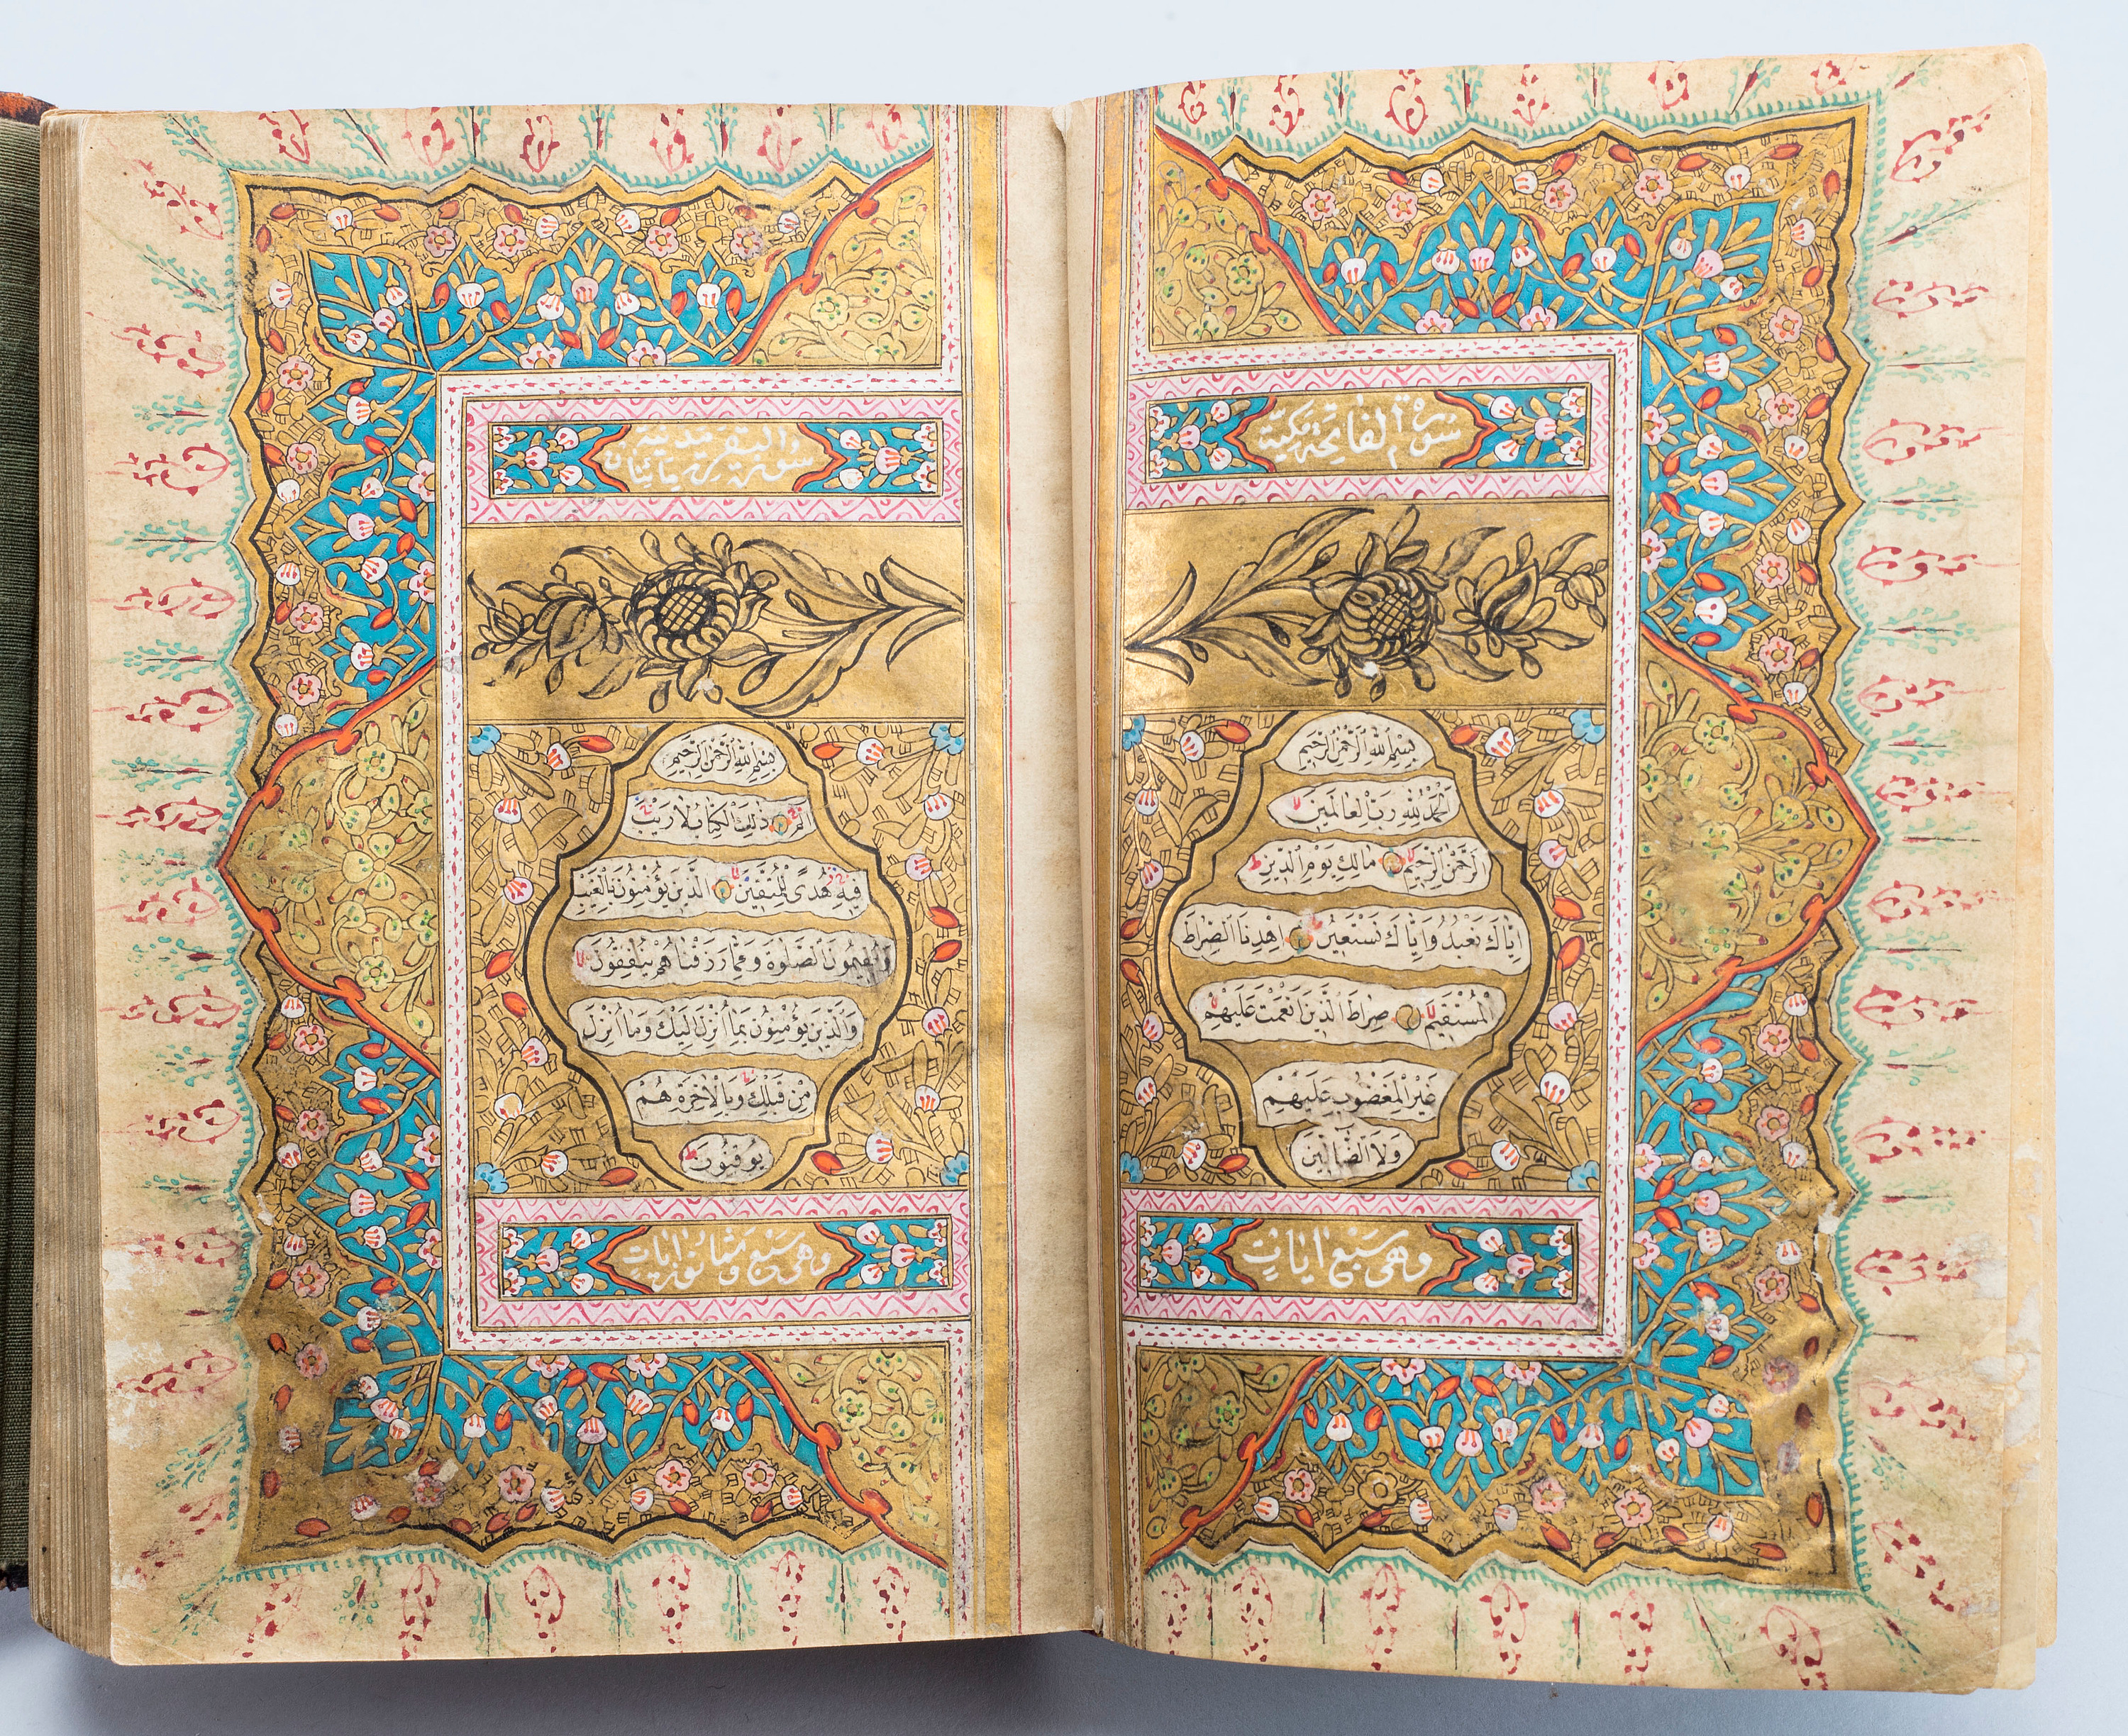 سورة الفاتحة مكية
بسم الله الرحمن الرحيم
الحمد لله رب العالمين
الرحمن الرحيم مالك يوم الدين
اياك نعبد واياك نستعين اهدنا الصراط
المستقيم صراط الذين انعمت عليهم
غير المغضوب عليهم
ولا الضالين
وهي سبع ايات
والبقر مدنية
سورة مائتان
بسم الله الرحمن الرحيم
الم ذلك الكتاب لا ريب
فيه هدى للمتقين الذين يؤمنون بالغيب
ويقيمون الصلوة ومما رزقناهم ينفقون
والذين يؤمنون بما انزل اليك وما انزل
من قبلك وبالاخرة هم
يوقنون
وهي سبع وثمانون ايات